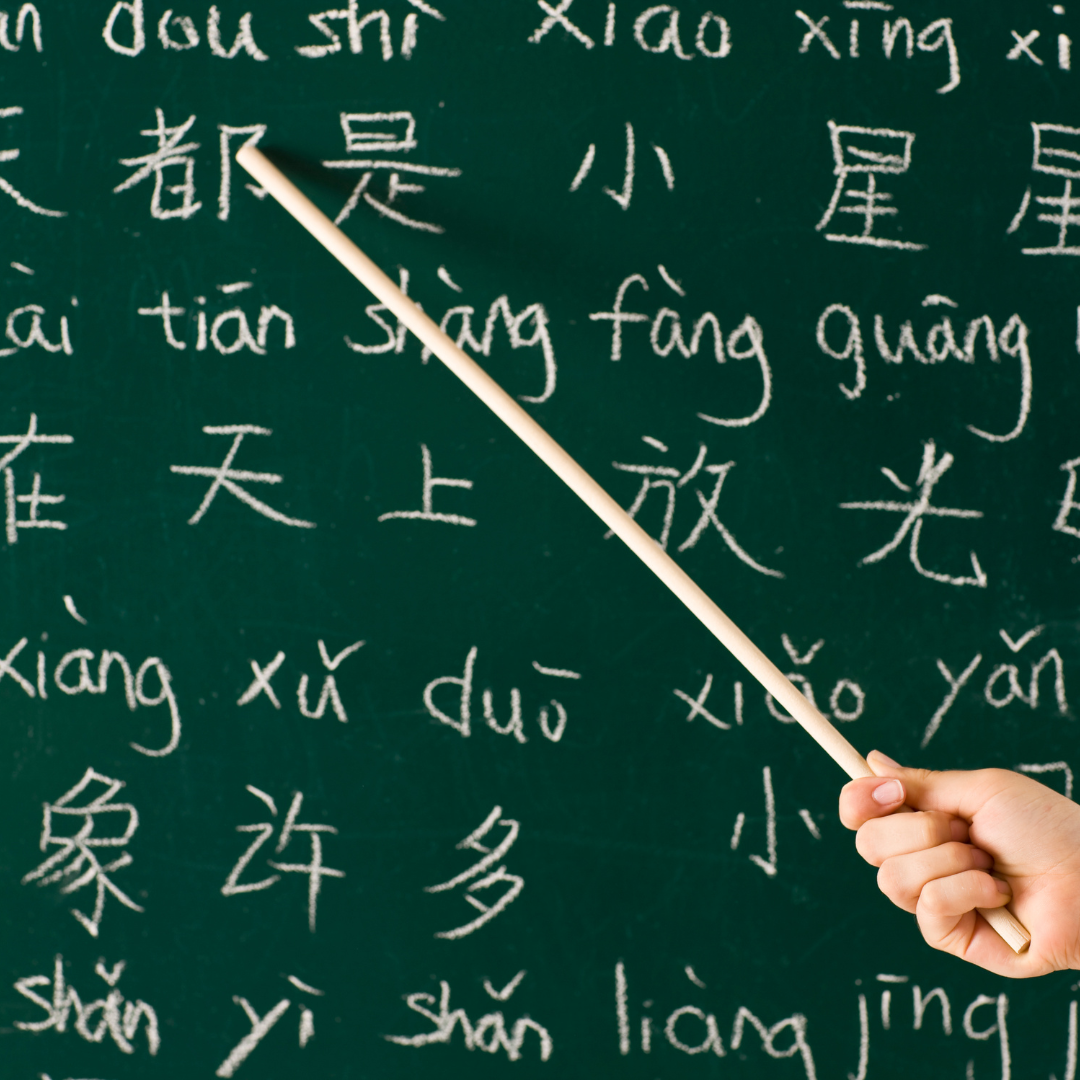 dou shì xiao xīng xi
都 是 小 星 星
ài tiān shàng fàng guāng
在 天 上 放 光
xiàng xǔ duō xiǎo yǎn
象 许 多 小
shǎn yì shǎn liàng jīng